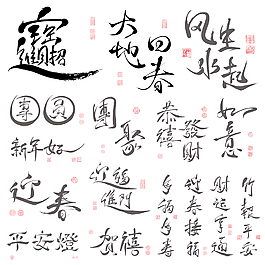 招財進寶
大地回春
風生水起
專員
團聚
恭禧發財
如意
新年好
迎春
迎福進門
迎春接福
財運亨通
竹報平安
平安燈
賀禧